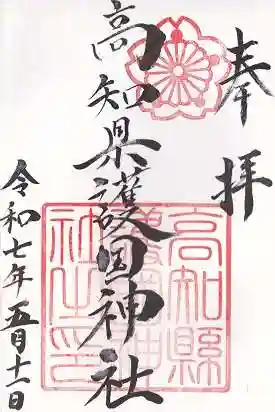 奉拝
高知県護国神社
高知縣護國神社之印
令和七年五月十一日